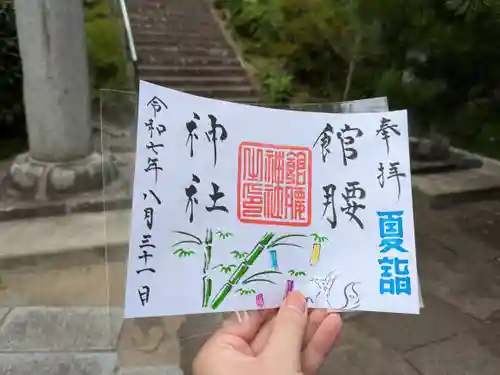 奉拝
夏詣
館腰
館腰
神社
之印
神社
令和七年八月三十一日